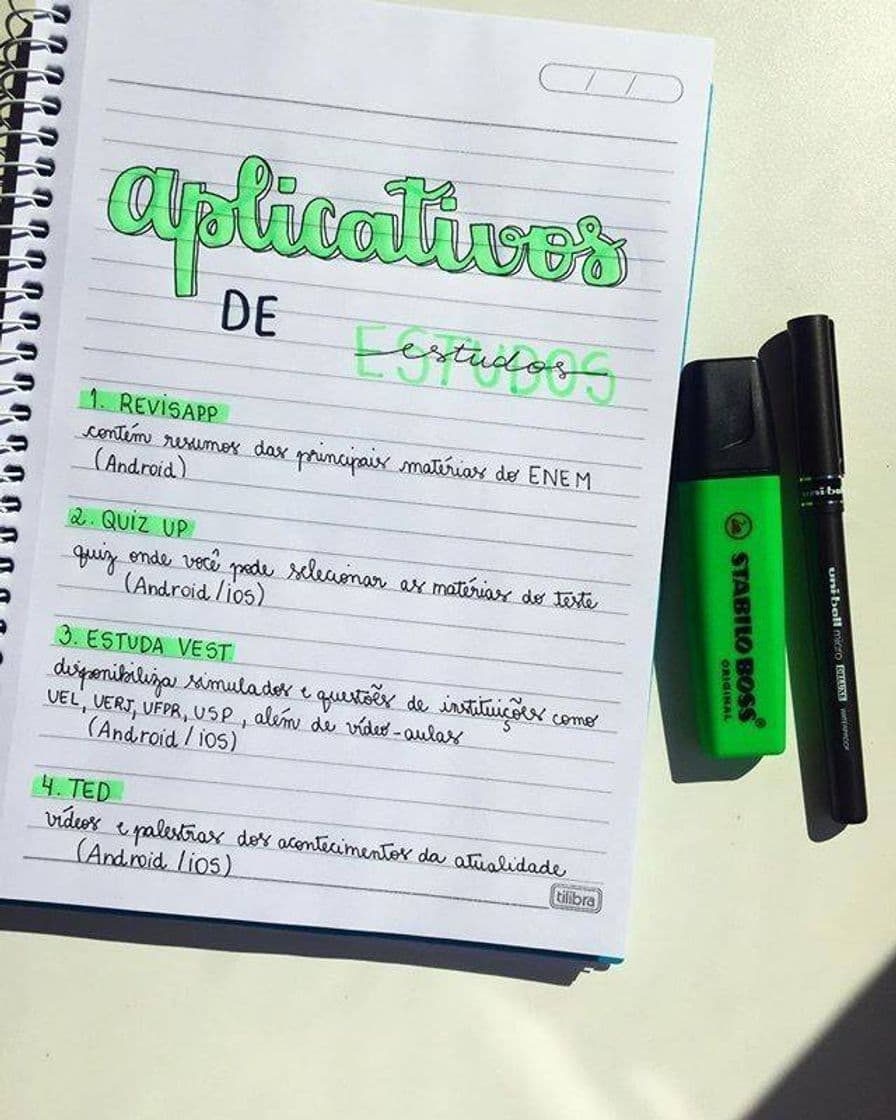 / /
aplicativos
DE
ESTUDOS
estudos
1. REVISAPP
contém resumos das principais matérias do ENEM
(Android)
2. QUIZ UP
quiz onde você pode selecionar as matérias do teste
(Android/iOS)
3. ESTUDA VEST
disponibiliza simulados e questões de instituições como
UEL, UERJ, UFPR, USP, além de vídeo-aulas
(Android/iOS)
4. TED
vídeos e palestras dos acontecimentos da atualidade
(Android/iOS)
tilibra
STABILO BOSS®
ORIGINAL
uni-ball
uni-ball micro DELUXE WATERPROOF